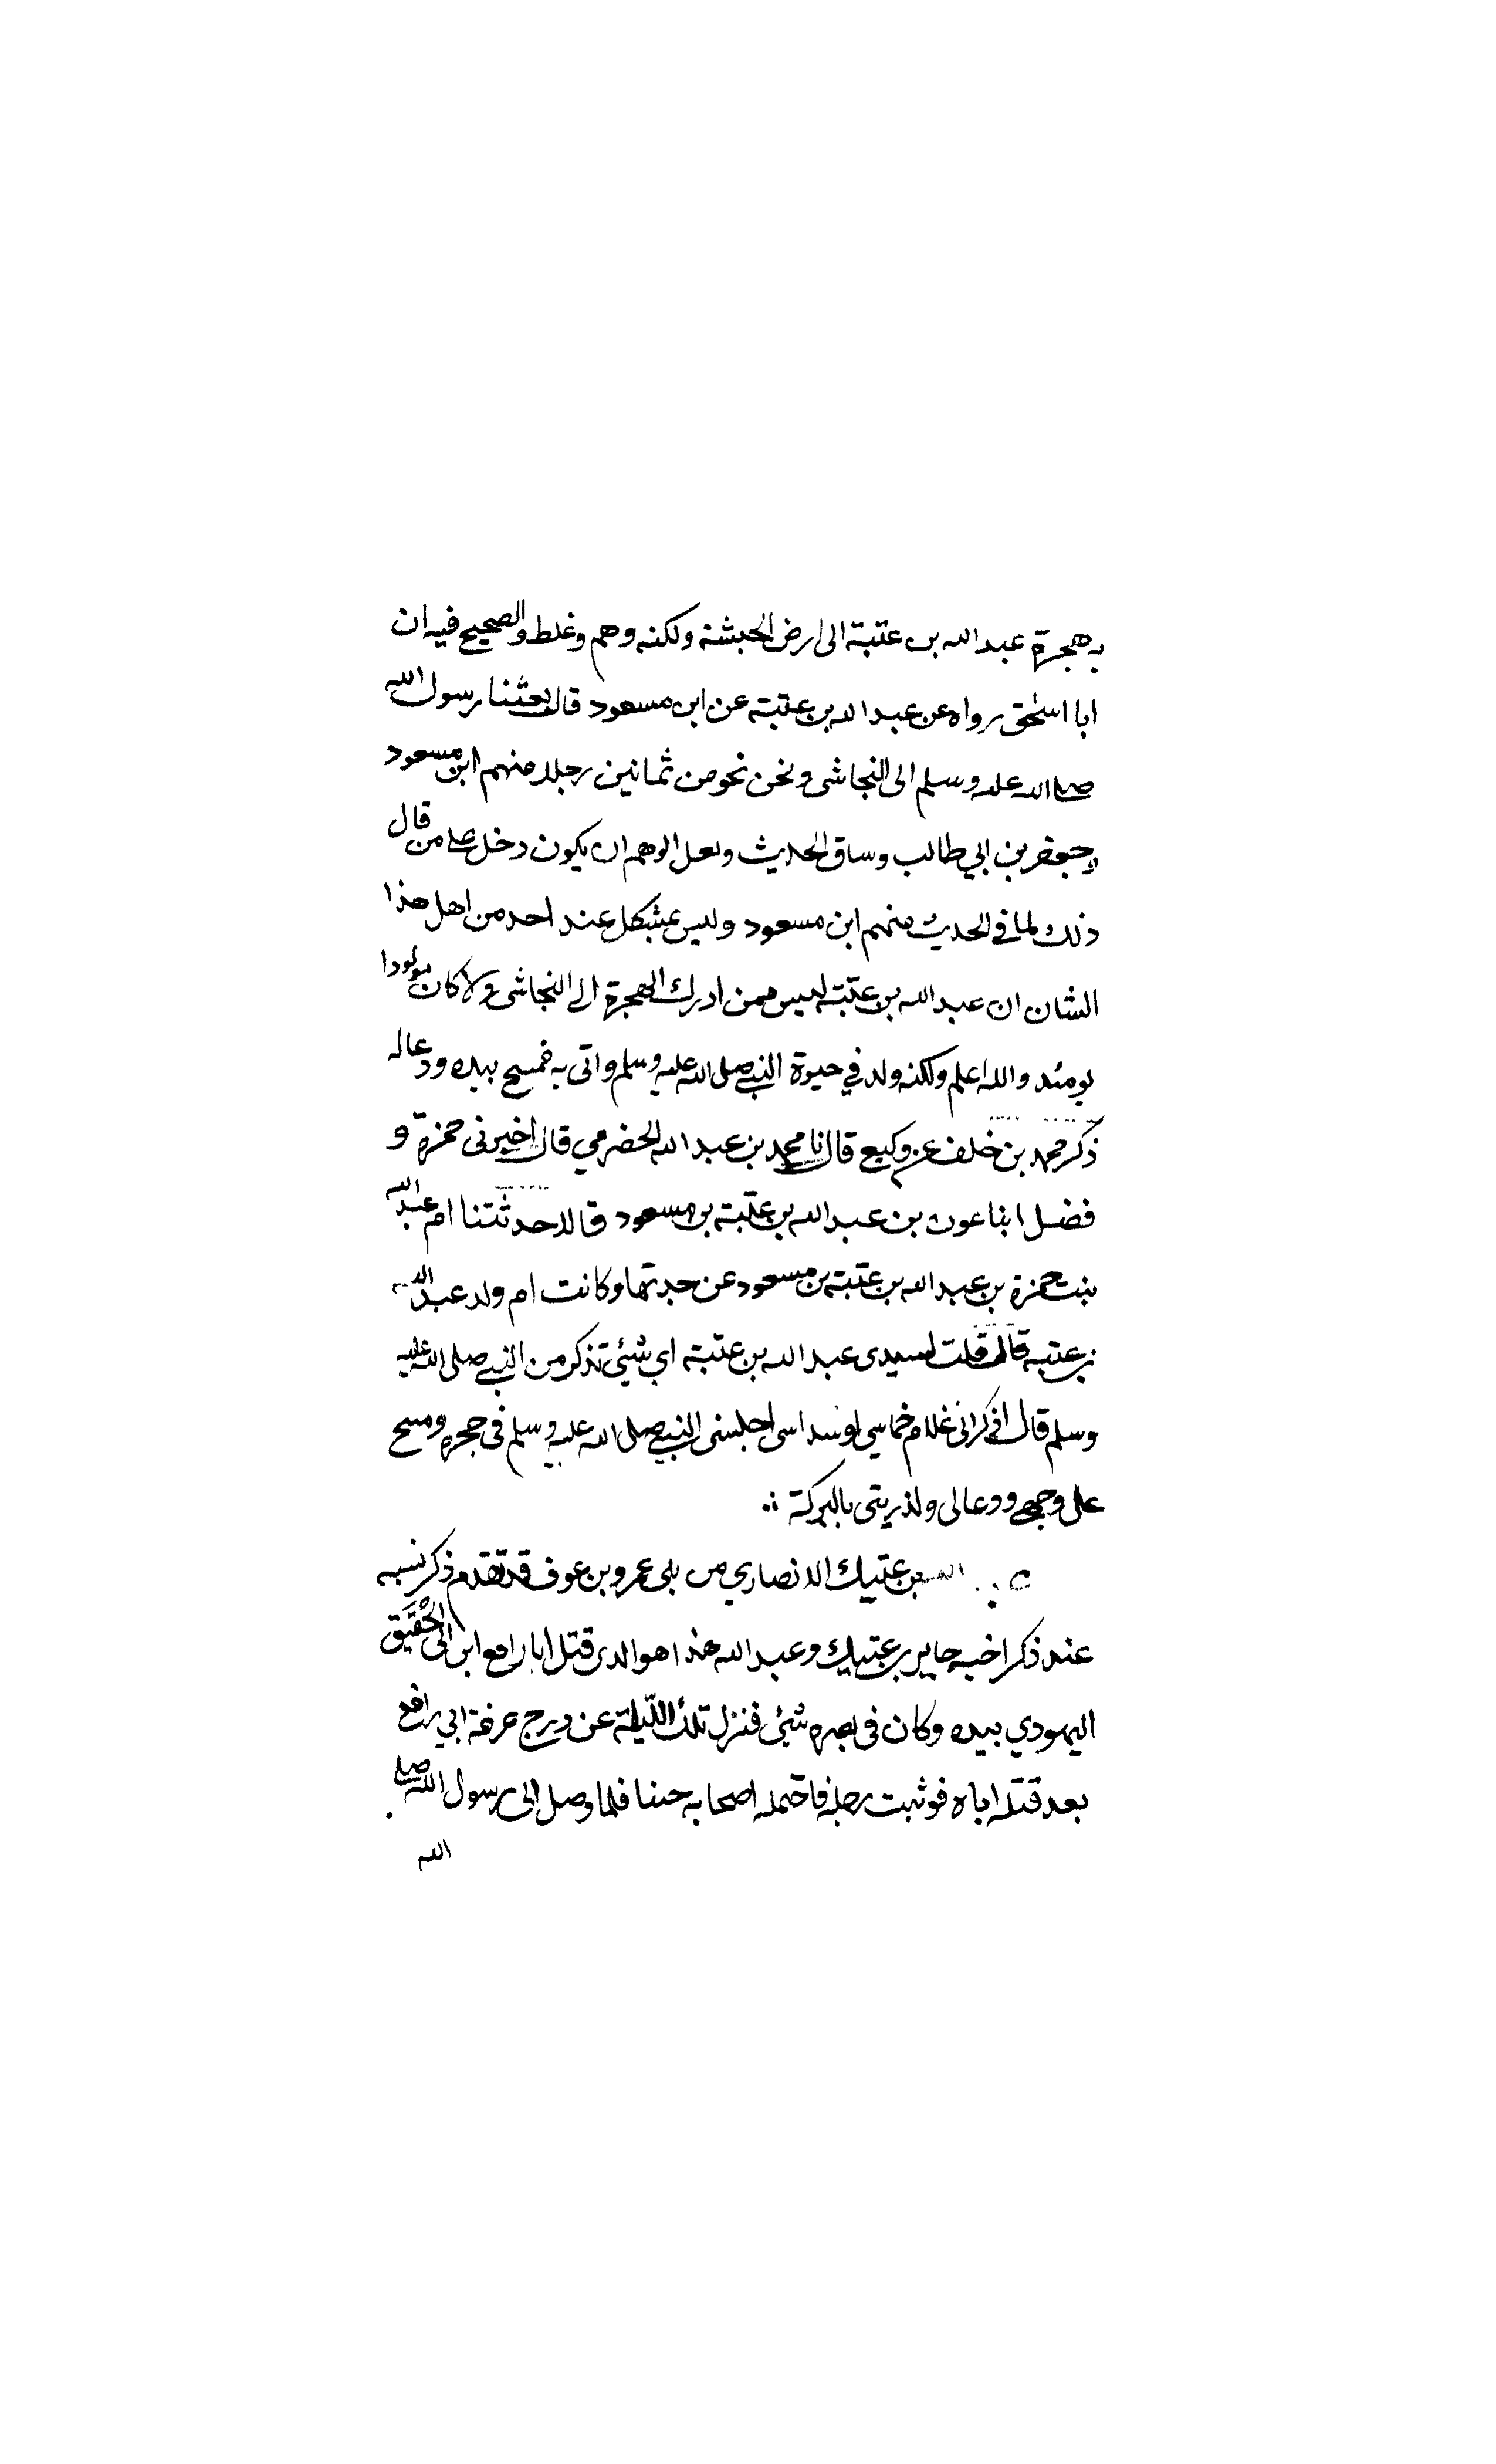 به هجرة عبد الله بن عتبة الى ارض الحبشة ولكنه وهم وغلط والصحيح فيه ان
ابا اسحق رواه عن عبد الله بن عتبة عن ابن مسعود قال بعثنا رسول الله
صلى الله عليه وسلم الى النجاشى ونحن نحو من ثمانين رجلا منهم ابن مسعود
وجعفر بن ابي طالب وساق الحديث ولعل الوهم ان يكون دخل على من قال
ذلك لما في الحديث منهم ابن مسعود وليس بمشكل عند احد من اهل هذا
الشان ان عبد الله بن عتبة ليس ممن ادرك الهجرة الى النجاشى ولا كان مولودا
يومئذ والله اعلم ولكنه ولد في حيوة النبي صلى الله عليه وسلم واتى به فمسح بيده ودعا له
ذكر محمد بن خلف عن وكيع قال نا محمد بن عبد الله الحضرمي قال اخبرنى حمزة و
فضل ابنا عون بن عبد الله بن عتبة بن مسعود قالا حدثتنا ام عبد الله
بنت حمزة بن عبد الله بن عتبة بن مسعود عن جدتها وكانت ام ولد عبد الله
بن عتبة قالت قلت لسيدى عبد الله بن عتبة اي شيئ تذكر من النبي صلى الله عليه
وسلم قال اذكر انى غلام خماسي او سداسى اجلسنى النبي صلى الله عليه وسلم فى حجره ومسح
على وجهي ودعا لى ولذريتى بالبركة
بن عتيك الانصاري من بنى عمرو بن عوف قد تقدم ذكر نسبه
عند ذكر اخيه جابر بن عتيك وعبد الله هذا هو الذى قتل ابا رافع ابن ابى الحُقَيق
اليهودي بيده وكان فى بصره شيئ فنزل تلك الليلة عن درج غرفة ابي رافع
بعد قتله اياه فوثبت رجله فاحتمله اصحابه حينا فلما وصل الى رسول الله صلى
الله